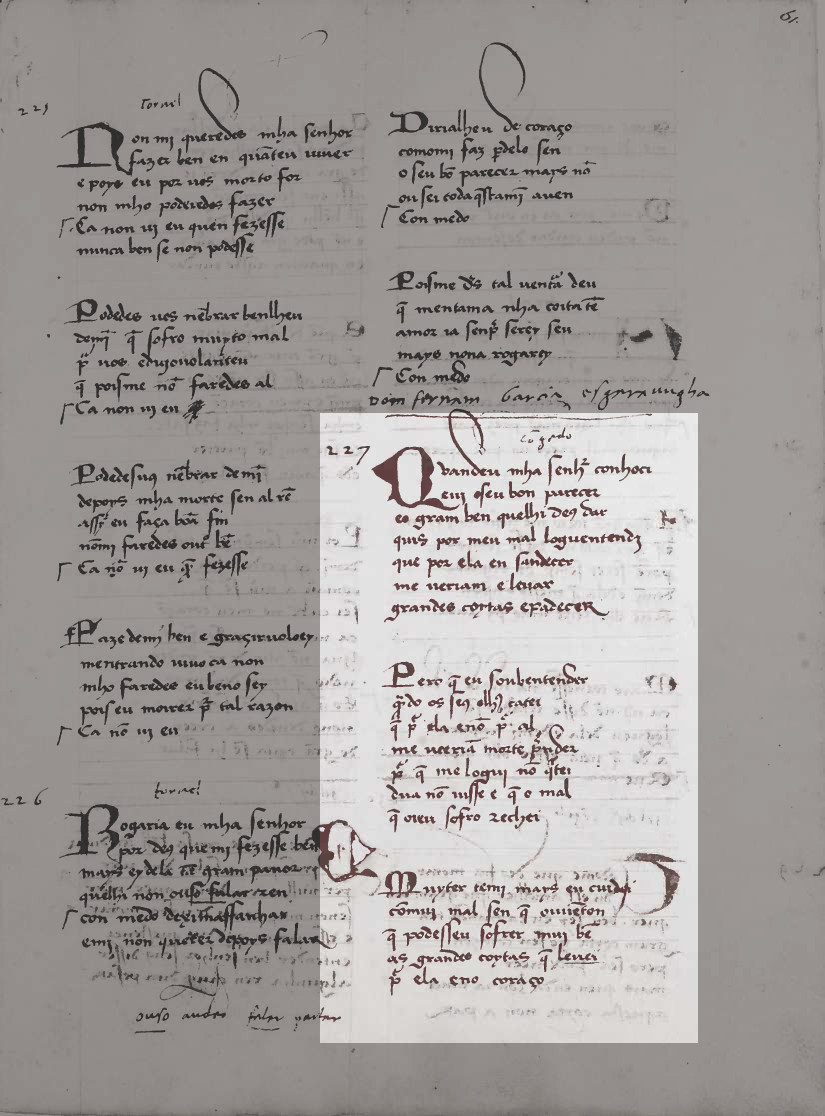 61
225
Tornel
Non mi queredes mha senhor
fazer ben en quãteu uiuer
e poys eu por uos morto for
non mho poderedes fazer
Ca non ui eu quen fezesse
nunca ben se non podesse
Podedes uos nẽbrar ben lheu
demĩ q̃ sofro muyto mal
q̃ poisme nõ faredes al
Ca non ui eu
Podedesuos nẽbrar de mĩ
depoys mha morte sen al rẽ
assy eu faça boã fin
nõmi faredes outˢ bẽ
Ca nõ ui eu q̃ fezesse
Fazedemi ben e graçiruoloey
mentrando uiuo ca non
mho faredes eu beno sey
poiseu morrer p̃ tal razon
Ca nõ ui eu
226
tornel
Rogaria eu mha senhor
por deꝯ que mi fezesse ben
mays ey dela tã gram pauor
quelhi non ouso falar ren
con medo
e mi non querer depoys falar
ouso falar
Dirialheu de coraço
comomi faz p̱delo sen
o seu bẽ parecer mays nõ
ou sei toda q̃stamĩ auen
Con medo
Poisme ds̃ tal uentˢã deu
q̃ mentama nha coita tẽ
amor ia senp̃ serey seu
mays nona rogarey
Con medo
Dom fernam Garcia esgarauugha
227
Quandeu mha senhˢ conhoci
e ui o seu bon parecer
e o gram ben quelhi deꝯ dar
quis por meu mal loguentendi
que por ela en sandecer
me ueriam e leuar
grandes coytas e padecer
Pero q̃ eu soubentender
q̃do os seꝯ olhꝯ catei
q̃ p̃ ela e nõ p̃ al
me ueeriã morte p̃nder
p̃ q̃ me logui nõ q̃tei
dua nõ uisse e q̃ o mal
q̃ oieu sofro rechei
Muyter temi mays en cuidei
comui mal sen q̃ ouuẽton
q̃ podesseu sofrer mui bẽ
as grandes coytas q̃ leuei
p̃ ela eno coraço